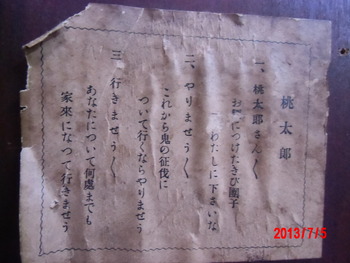 桃太郎
一、桃太郎さん〱
お腰につけたきび團子
一つわたしに下さいな
二、やりませう〱
これから鬼の征伐に
ついて行くならやりませう
三、行きませう〱
あなたについて何處までも
家來になつて行きませう
2013/7/5